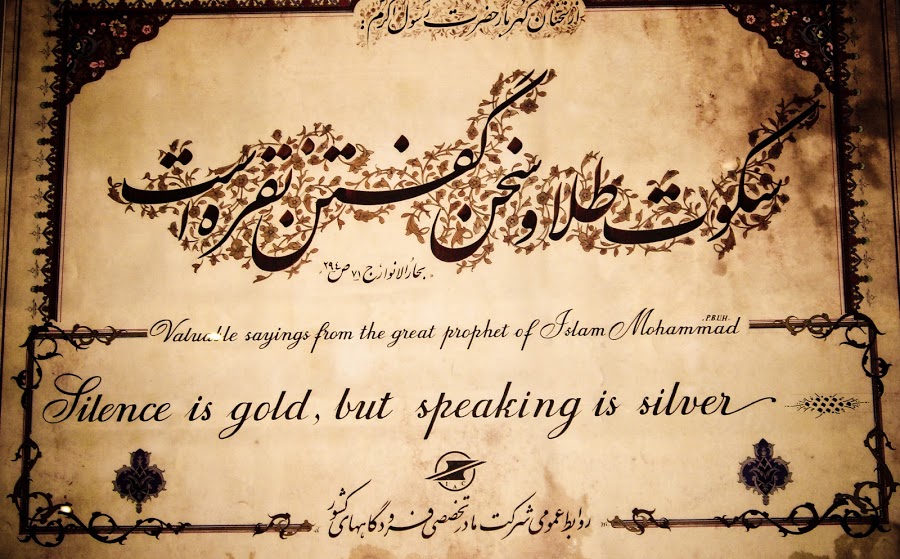 از سخنان گهربار حضرت رسول اکرم:
سکوت طلا و سخن گفتن نقره است
بحارُالانوار ج ۷۱ ص ۲۹٤
Valuable sayings from the great prophet of Islam Mohammad .P.B.U.H.
Silence is gold, but speaking is silver
روابط عمومی شرکت مادر تخصصی فرودگاههای کشور